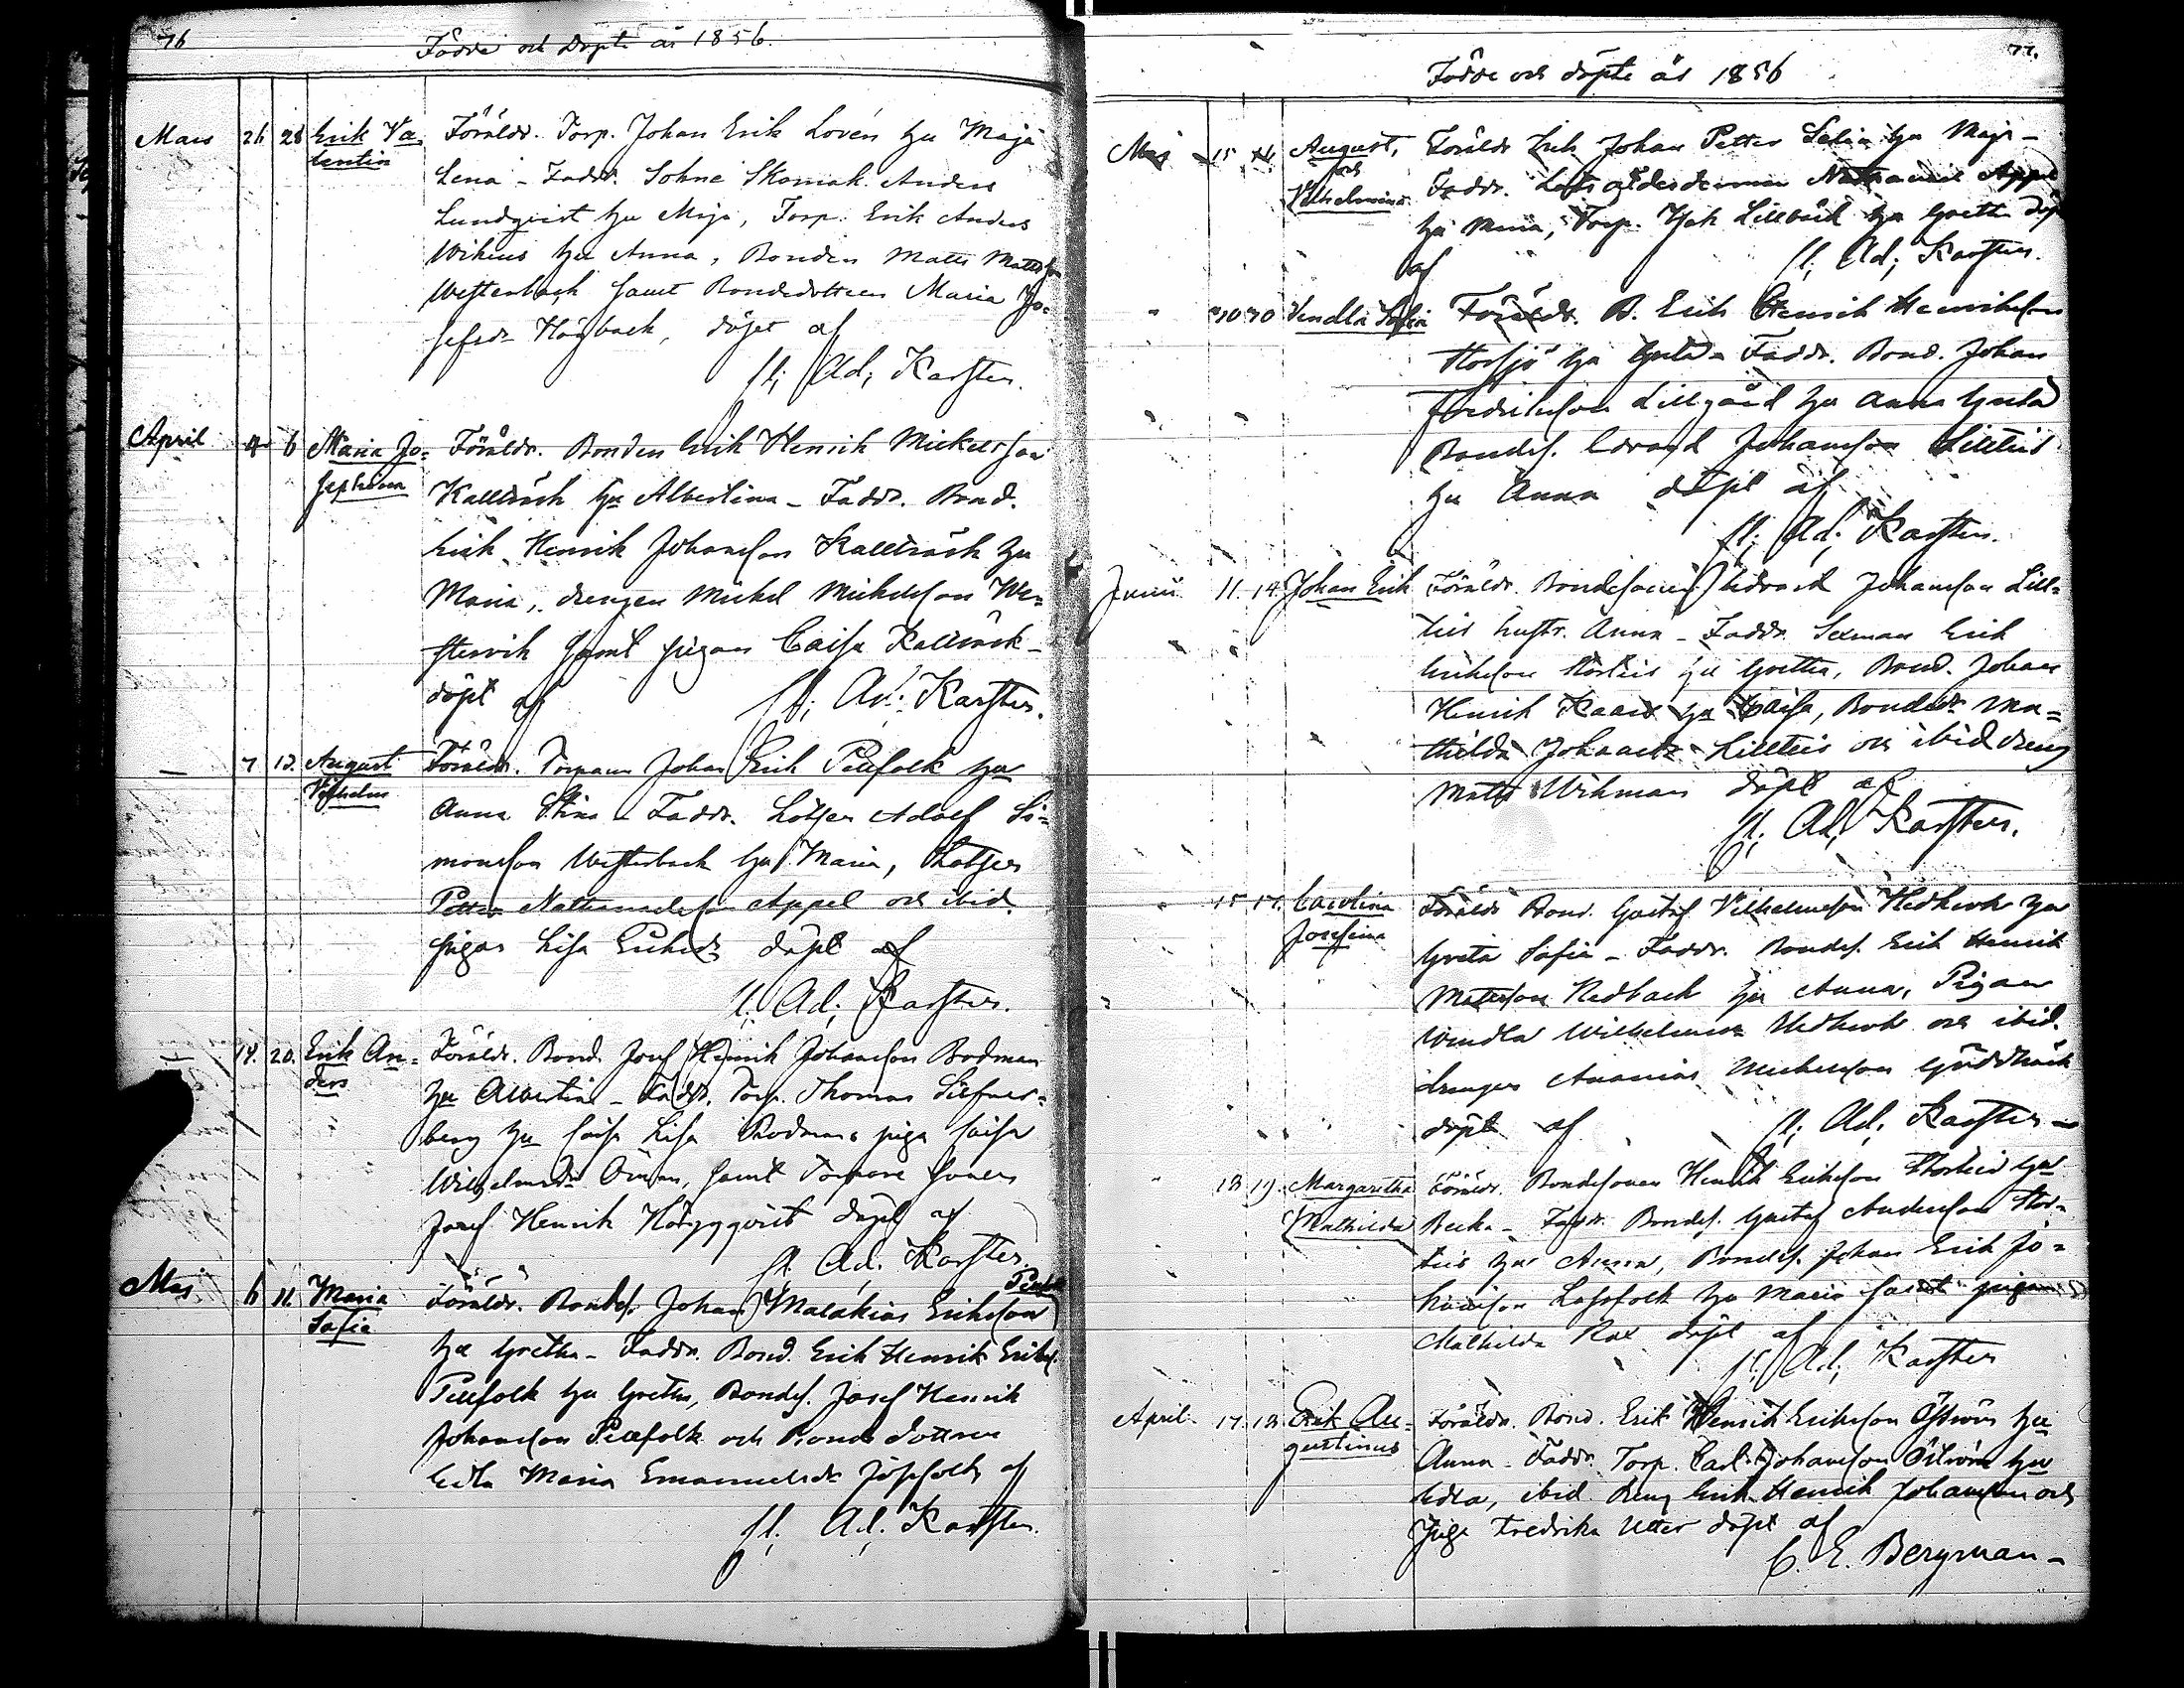 76
Födde och döpte år 1856.
Mars 26 28 Erik Va- Föräldr. Torp. Johan Erik Lovén hu Maja
lentin Lena - Faddr. Sohne Skomak. Anders
Lundqvist hu Maja, Torp. Erik Anders
Wikius hu Anna, Bonden Matts Mattsson
Westerback samt Bondedottren Maria Jo-
sefsdr Högback, döpt af
Ad; Karsten.
April 4 6 Maria Jo- Föräldr. Bonden Erik Henrik Mickelsson
sephina Kallträsk hu Albertina - Faddr. Bond.
Erik Henrik Johansson Kallträsk hu
Maria, drengen Mickel Mickelsson We-
stervik samt pigan Caisa Kallträsk -
döpt af Ad; Karsten.
— 7 13. August Föräldr. Torparn Johan Erik Pellfolk hu
Vilhelm Anna Stina - Faddr. Lotsen Adolf Si-
monsson Westerback hu Maria, Lotsen
Petter Nathanaelsson Appel och ibid.
pigan Lisa Eriksdr döpt af
Ad; Karsten.
14. 20. Erik An- Föräldr. Bond. Josef Henrik Johansson Bodman
ders hu Albertina - Faddr. Torp. Thomas Silfver-
berg hu Caisa Lisa Bodman, piga Caisa
Wilhelmsdr Öman, samt Torpare sonen
Josef Henrik Högqvist döpt af
Ad. Karsten
Maj 6 11. Maria Föräldr. Bondes. Johan Malakias Eriksson Pellfolk
Sofia hu Gretha - Faddr. Bond. Erik Henrik Eriks.
Pellfolk hu Gretha, Bondes. Josef Henrik
Johansson Pellfolk och Bonde dottren
Maria Emanuelsdr af
Ad. Karsten.
77.
Födde och döpte år 1856
Maj 15 August, Föräldr Johan Petter hu Maja -
och Faddr. Lots ålderdermannen Nathanael Appel
Vilhelmina hu Maria, Torp. Isak Lillbäck hu Gretha döpt
af Ad; Karsten.
" 10 Vendla Sofia Föräldr. B. Erik Henrik Henriksson
Storsjö hu Greta - Faddr. Bond. Johan
Fredriksson Lillgård hu Anna Greta
Bondes. Edvard Johansson Lillteir
hu Anna döpt af
Ad; Karsten.
Junii 11. 14. Johan Erik Föräldr. Bondesonen Edvard Johansson Lill-
teir hustr. Anna - Faddr. Sexman Erik
Eriksson Storteir hu Gretha, Bond. Johan
Henrik hu Caisa, Bondedr Ma-
thilda Johansdr Lillteir och ibid dreng
Matts Wikman döpt af
Ad; Karsten.
" 15 17. Carolina Föräldr Bond. Gustaf Vilhelmsson hu
Josefina Greta Sofia - Faddr. Bondes. Erik Henrik
Mattsson Redback hu Anna, Pigan
Wendla Wilhelmina och ibid.
drengen Ananias Mickelsson
döpt af Ad; Karsten -
" 18 19. Margaretha Föräldr. Bondesonen Henrik Eriksson Storteir hu
Mathilda Beata - Faddr. Bondes. Gustaf Andersson Stor-
teir hu Anna, Bondes. Johan Erik Jo-
hansson Lassfolk hu Maria samt pigan
Mathilda döpt af
Ad; Karsten
April 17. 18. Erik Au- Föräldr. Bond. Erik Henrik Eriksson Öström hu
gustinus Anna - Faddr. Torp. Carl Johansson Öström hu
Edla, ibid. dreng Erik Henrik Johansson och
Piga Fredrika Utter döpt af
C. E. Bergman -